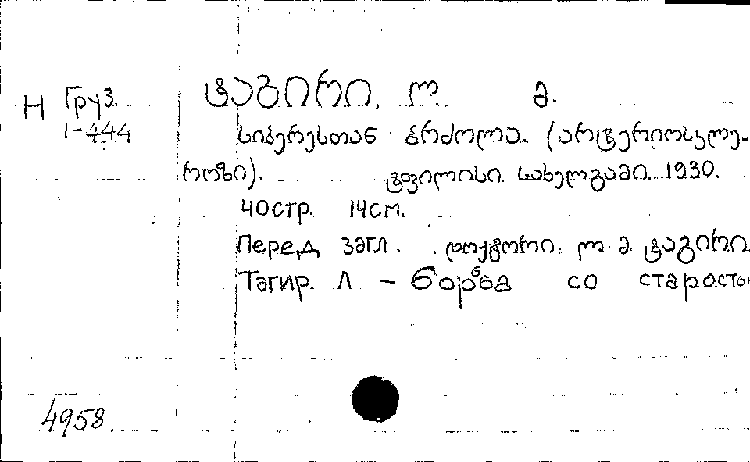 Н Груз 1-444
ტაგირი, ლ. მ.
სიბერესთან ბრძოლა. (არტერიოსკლე-
როზი). ტფილისი. სახელგამი. 1930.
40стр. 14см.
Перед загл. დოქტორი. ლ. მ. ტაგირი
Тагир. Л – борьба со старость
4958